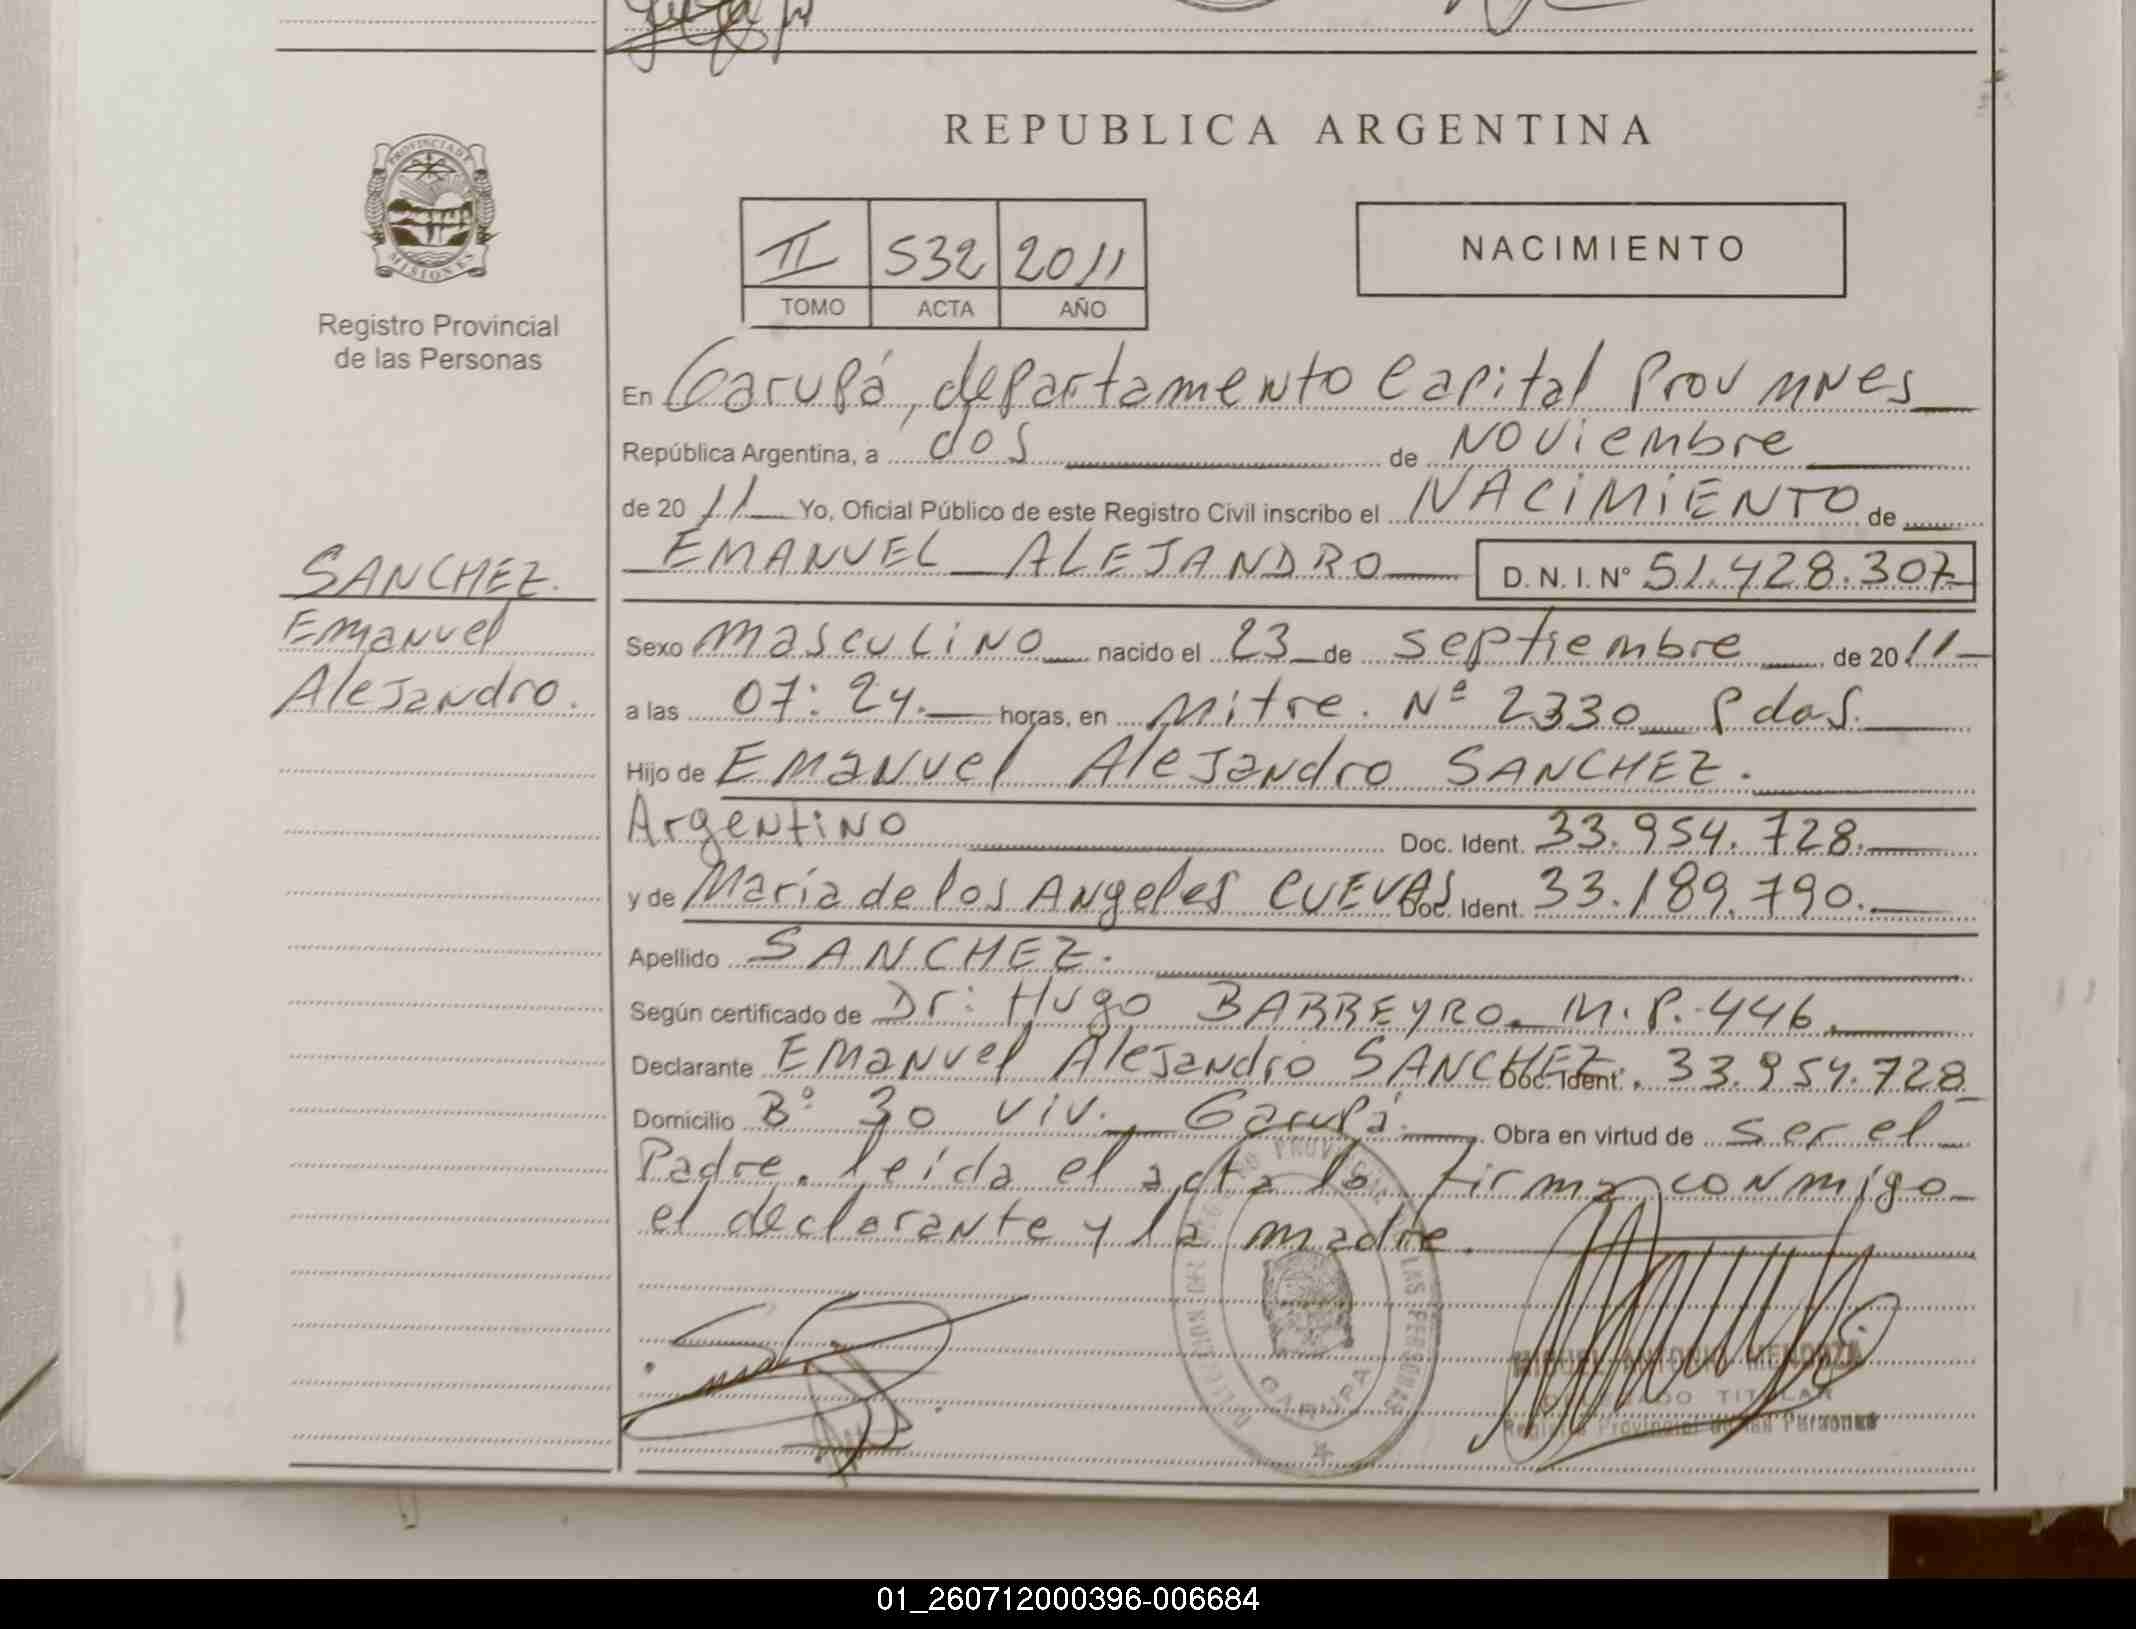 REPUBLICA ARGENTINA
PROVINCIA DE
MISIONES
Registro Provincial
de las Personas
II 532 2011
TOMO ACTA AÑO
NACIMIENTO
En Garupá, departamento Capital Prov MNes
República Argentina, a dos de Noviembre
de 2011 Yo, Oficial Público de este Registro Civil inscribo el NACIMIENTO de
EMANUEL ALEJANDRO D. N. I. Nº 51.428.307
SANCHEZ.
Emanuel
Alejandro.
Sexo Masculino nacido el 23 de septiembre de 2011
a las 07:24. horas, en Mitre. Nº 2330 Pdas.
Hijo de Emanuel Alejandro SANCHEZ.
Argentino Doc. Ident. 33.954.728.
y de María de los Angeles CUEVAS Doc. Ident. 33.189.790.
Apellido SANCHEZ.
Según certificado de Dr: Hugo BARREYRO. M.P. 446.
Declarante Emanuel Alejandro SANCHEZ. Doc. Ident. 33.954.728
Domicilio Bº 30 viv. Garupá. Obra en virtud de ser el
Padre. leída el acta la firma conmigo
el declarante y la madre.
GARUPA
MIGUEL ANTONIO MENDOZA
DELEGADO TITULAR
Registro Provincial de las Personas
01_260712000396-006684